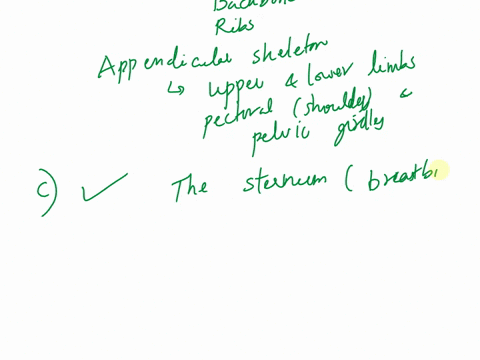 Backbone
Ribs
Appendicular skeleton
↳ upper & lower limbs
pectoral (shoulder) &
pelvic girdles
c) ✓ The sternum (breastb